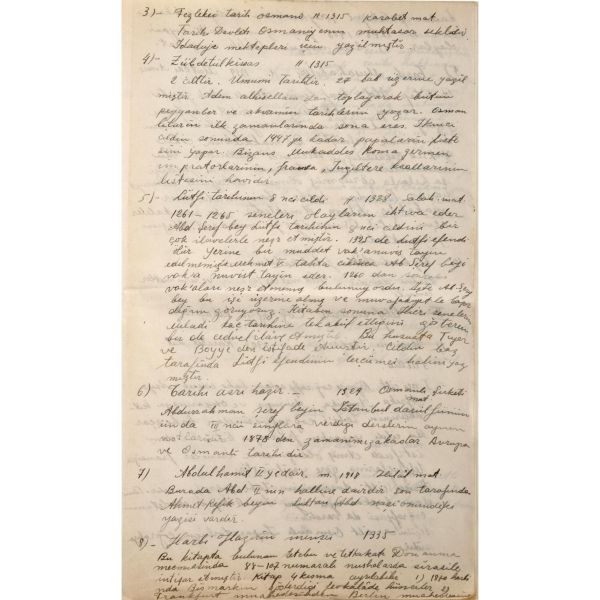 3)- Fezlekei tarih osmanî H 1315 Karabet mat.
Tarihi Devleti Osmaniyenin muhtasar şeklidir
İdadiye mektepleri için yazılmıştır.
4)- Zübdetulkisas H 1315
2 cilttir. Umumi tarihtir. 27 üzerine yazıl
mıştır. Adem aleihisselamdan toplayarak bütün
peygamber ve akvamın tarihlerini yazar. Osman
lıların ilk zamanlarında sona erer. İkinci
cildin sonunda 1447 ye kadar papaların liste
sini yapar. Bizans Mukaddes Roma Germen
impratorlarının, fransa, İngiltere krallarının
listesini havidir.
5)- Lütfi tarihinin 8 nci cildi H 1328 Sabah mat.
1261-1265 seneleri olaylarını ihtiva eder
Abd. Şeref bey Lütfi tarihinin 8 nci cildini bir
çok ilavelerle neşr etmiştir. 1325 de Lütfi efendi
ölür yerine bir müddet vak'anuvis tayin
edilmemiş Mehmet V tahta çıkınca Ab. Şeref beyi
vak'a nuvist tayin eder. 1260 dan sonraki
vak'aları neşr etmemiş bulunuyordu. İşte Ab. Şeref
bey bu işi üzerine almış ve muvaffakiyetle
görüyoruz. Kitabın sonuna Hicri senelerin
Miladi kaç tarihine tekabül ettiğini gösteren
bir de cedvel ilave etmiştir. Bu hususta
ve den istifade etmiştir. Cildin baş
tarafında Lütfi efendinin tercümei halini yaz
mıştır.
6)- Tarihi asri hazır - 1329 Osmanlı Şirketi
mat.
Abdurrahman Şeref beyin İstanbul darülfünün
ünda III ncü sınıflara verdiği derslerin aynını
1875 den zamanımıza kadar Avrupa
ve Osmanlı tarihidir.
7) Abdulhamit II ye dair. m. 1918 Hilal mat.
Burada Abd II nin halline dairdir son tarafında
Ahmet Refik beyin Sultan Abd. naşi önünde
yazisi vardır.
8)- Harbi Hazırın menşei 1335
Bu kitapta bulunan tetebu ve tetkikat Donanma
mecmuasında 88-107 numaralı nushalarda sırasile
intişar etmiştir. Kitap 4 kısma ayrılabilir 1) 1870 harbi
nda Bismarkın gösterdiği fevkalâde hünerler 2)
Frankfurt muahedesinden Berlin muahedesine